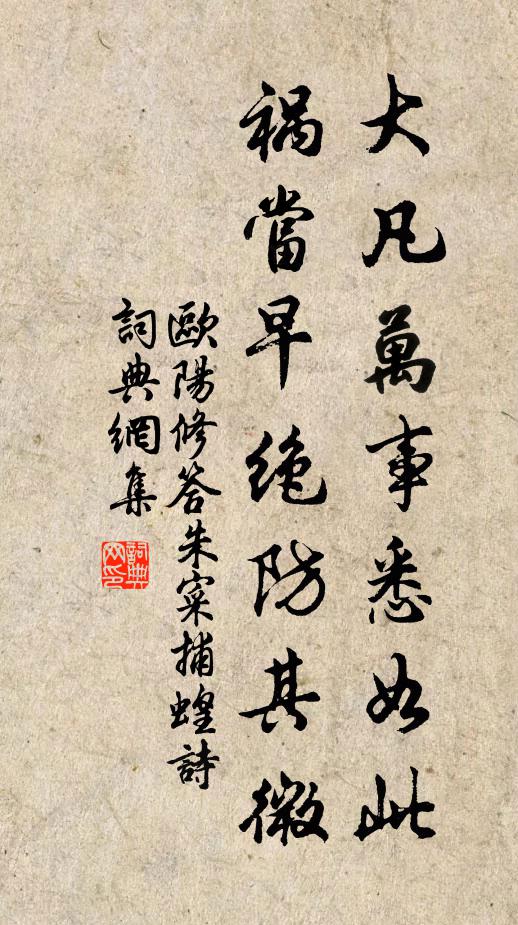 大凡萬事悉如此
禍當早絕防其微
歐陽修答朱寀捕蝗詩
詞典網集
詞典网印